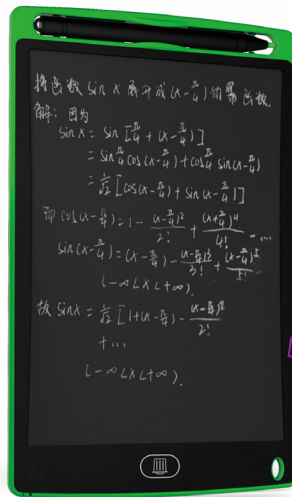 将函数 sin x 展开成 (x-π/4) 的幂函数.
解: 因为
sin x = sin [π/4 + (x-π/4)]
= sin π/4 cos (x-π/4) + cos π/4 sin (x-π/4)
= 1/√2 [cos(x-π/4) + sin (x-π/4)]
而 cos(x-π/4) = 1 - (x-π/4)²/2! + (x+π/4)⁴/4! - ...
sin (x-π/4) = (x-π/4) - (x-π/4)³/3! + (x-π/4)⁵/5! ...
(-∞<x<+∞).
故 sinx = 1/√2 [1+(x-π/4) - (x-π/4)²/2!
+...
(-∞<x<+∞).